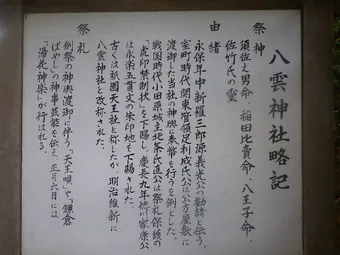 八雲神社略記
祭神
須佐之男命・稲田比売命・八王子命・
佐竹氏の霊
由緒
永保年中新羅三郎源義光公の勧請と伝う。
室町時代、関東管領足利成氏公は公方屋敷に
渡御した当社の神輿に奉幣を行うを例とした。
戦国時代小田原城主北条氏直公は祭礼保護の
「虎印禁制状」を下賜し、慶長九年徳川家康公
は永楽五貫文の朱印地を下賜された。
古くは祇園天王社と称したが、明治維新に
八雲神社と改称された。
祭礼
例祭の神輿渡御に伴う「天王唄」や「鎌倉
ばやし」の神事芸能を伝え、正月六日には
「湯花神楽」が行はれる。